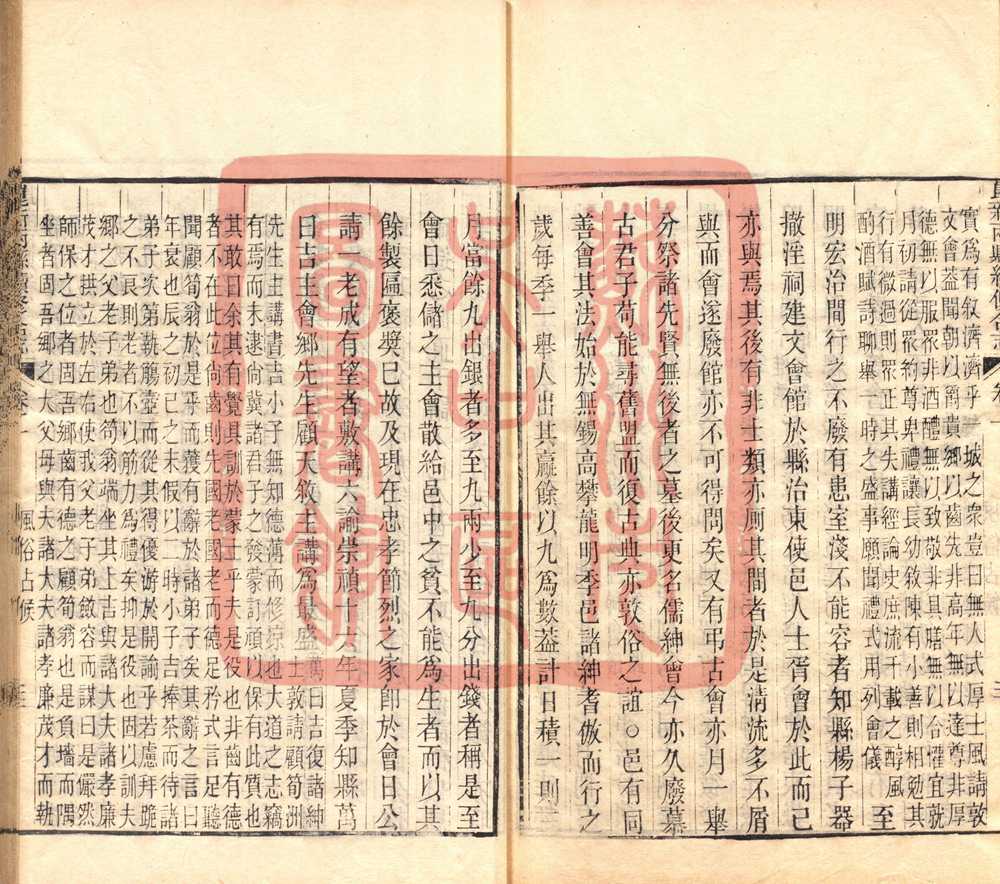 實爲有叙濟濟乎一城之衆豈曰無人式厚士風請敦
文會益聞朝以爵貴鄉以齒先非高年無以達尊非厚
德無以服眾非酒醴無以致敬非其膳無以合懽宜就
月初請從眾約尊卑禮讓長幼敘陳有小善則相勉其
行有微過則眾正其失講經論史庶流千載之醇風
酌酒賦詩聊舉一時之盛事願聞禮式用列會儀 至
明宏治間行之不廢有患室淺不能容者知縣楊子器
撤淫祠建文會館於縣治東使邑人士胥會於此而已
亦與焉其後有非士類亦厠其間者於是淸流多不屑
與而會遂廢館亦不可得問矣又有弔古會亦月一舉
分祭諸先賢無後者之墓後更名儒紳會今亦久廢慕
古君子苟能尋舊盟而復古典亦敦俗之誼○邑有同
善會其法始於無錫高攀龍明季邑諸紳耆倣而行之
歲每季一舉人出其贏餘以九爲數葢計日積一則三
月當餘九出銀者多至九兩少至九分出錢者稱是至
會日悉儲之主會散給邑中之貧不能爲生者而以其
餘製匾褒獎已故及現在忠孝節烈之家卽於會日公
請一老成有望者敷講六論崇禎十六年夏季知縣萬
曰吉主會鄉先生顧天敘主講爲最盛 萬曰吉復諸紳士敦請顧筍洲
先生主講書吉小子無知德薄而修涼也大道之志竊
有焉而未逮尙冀諸君子之發蒙訂頑以保有此質也
其敢曰余其有覺具訓於蒙士乎夫是役也非齒有德
者不在此位尙齒則先國老國老而德足矜式言足聽
聞顧筍翁於是乎而獲有辭於諸弟子矣其辭之言曰
年衰也辰之初已之末假以二時小子吉捧茶而待諸
弟子次第執觴壺而從其得優游於開諭乎若慮拜跪
之不艮則老者不以筋力爲禮矣抑是役也固以訓夫
鄉之父老子弟也筍翁端坐其上吉與諸大夫諸孝廉
茂才拱立於左右使我父老子弟斂容而謀曰是儼然
師保之位者固吾鄉齒有德之顧筍翁也是負墻而隅
坐者固吾鄉之大父母與夫諸大夫諸孝廉茂才而執
卷一
風俗占候